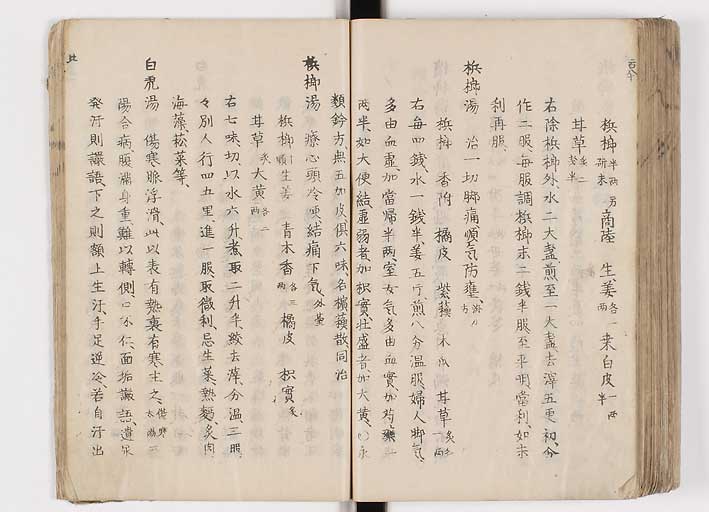 梹榔 半両 研末 另 商陸 生姜 各一両 桒白皮 一両半
甘草 炙二 分半
右除梹榔外水二大盞煎至一大盞去滓五更初分
作二服毎服調梹榔末二銭半服至平明當利如未
利再服
梹榔湯 治一切脚痛順気防壅
梹榔 香附 橘皮 紫蘓 木瓜 甘草 炙 一両
右毎四銭水一銭半姜五斤煎八分温服婦人脚気
多由血虚加當帰半両室女気多由血實加芍薬
両半如大便結虚弱者加枳實壮盛者加大黄
類鈐方無五加皮俱六味名檳蘓散同治
梹榔湯 療心頭冷硬結痛下気 外臺
梹榔 生姜 青木香 各三両 橘皮 枳實 炙
甘草 炙 大黄 各二両
右七味切以水六升煮取二升半絞去滓分温三服
々別人行四五里進一服取微利忌生菜熱麪炙肉
海藻菘菜等
白虎湯 傷寒脉浮滑此以表有熱裏有寒主之
陽合病腹満身重難以轉側口不仁面垢讝語遺尿
発汗則讝語下之則額上生汗手足逆冷若自汗出